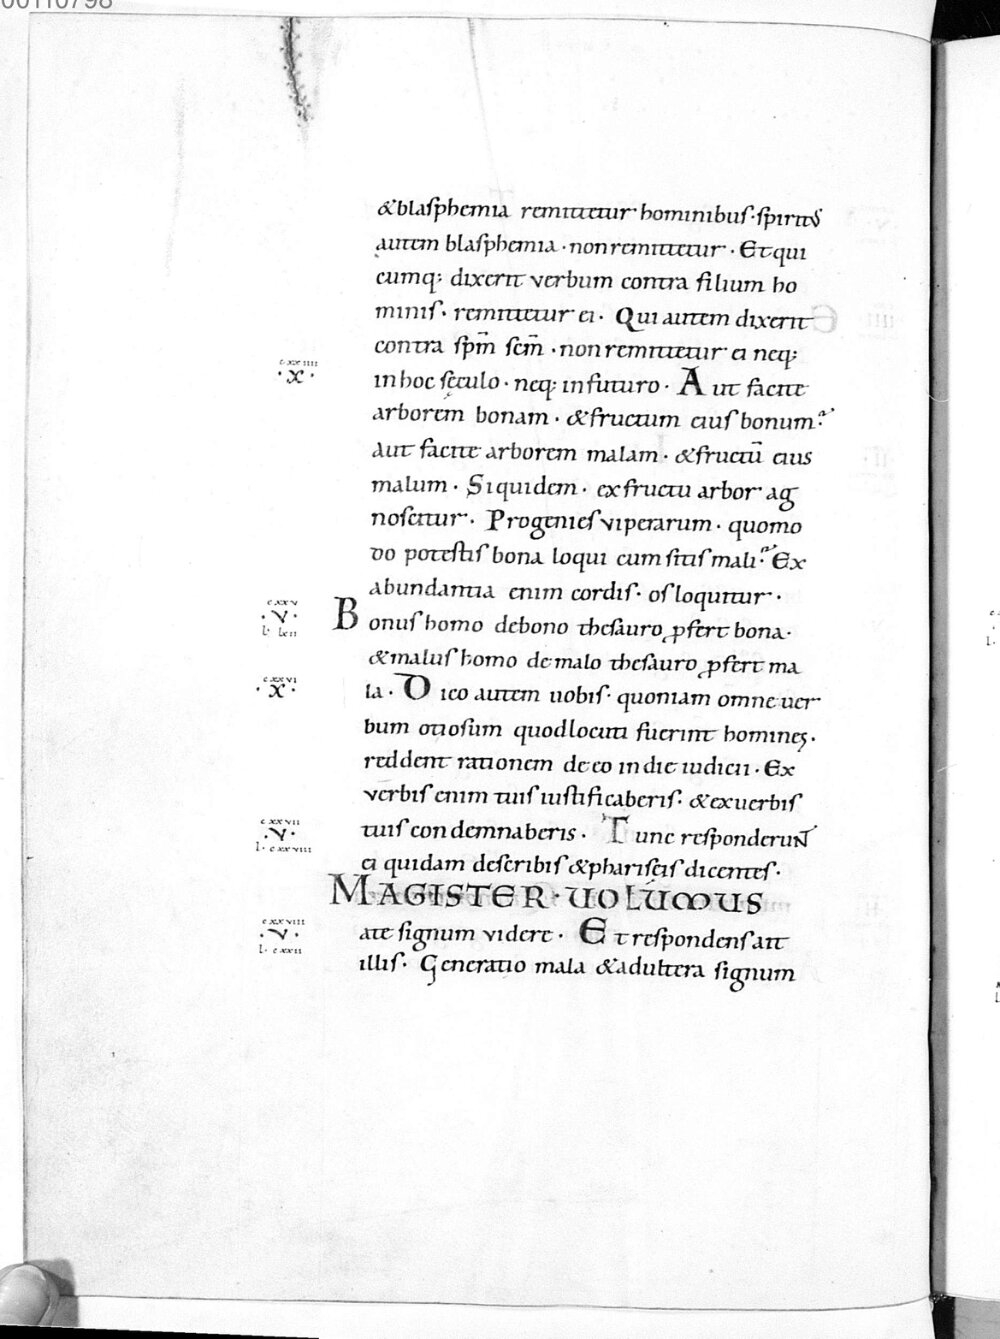 00110798
&blasphemia remittetur hominibus· spiritus
autem blasphemia · non remittetur · Et qui
cumq; dixerit verbum contra filium ho
minis · remittetur ei · Qui autem dixerit
contra sp̄m sc̄m · non remittetur ei neq;
cxxiiii
· x ·
in hoc sęculo · neq; in futuro · Aut facite
arborem bonam · & fructum eius bonum ·
aut facite arborem malam · & fructū eius
malum · Siquidem · ex fructu arbor ag
noscitur · Progenies viperarum · quomo
do potestis bona loqui cum sitis mali · Ex
abundantia enim cordis · os loquitur ·
cxxv
· v ·
l· lxii
Bonus homo de bono thesauro ꝓfert bona ·
& malus homo de malo thesauro ꝓfert ma
cxxvi
· x ·
la · Dico autem uobis · quoniam omne uer
bum otiosum quod locuti fuerint homines ·
reddent rationem de eo in die iudicii · Ex
verbis enim tuis iustificaberis · & ex uerbis
cxxvii
· v ·
l· cxxviii
tuis condemnaberis · Tunc responderunt
ei quidam de scribis & pharisęis dicentes ·
MAGISTER · UOLUMUS
cxxviii
· v ·
l· cxxii
ate signum videre · Et respondens ait
illis · Generatio mala & adultera signum